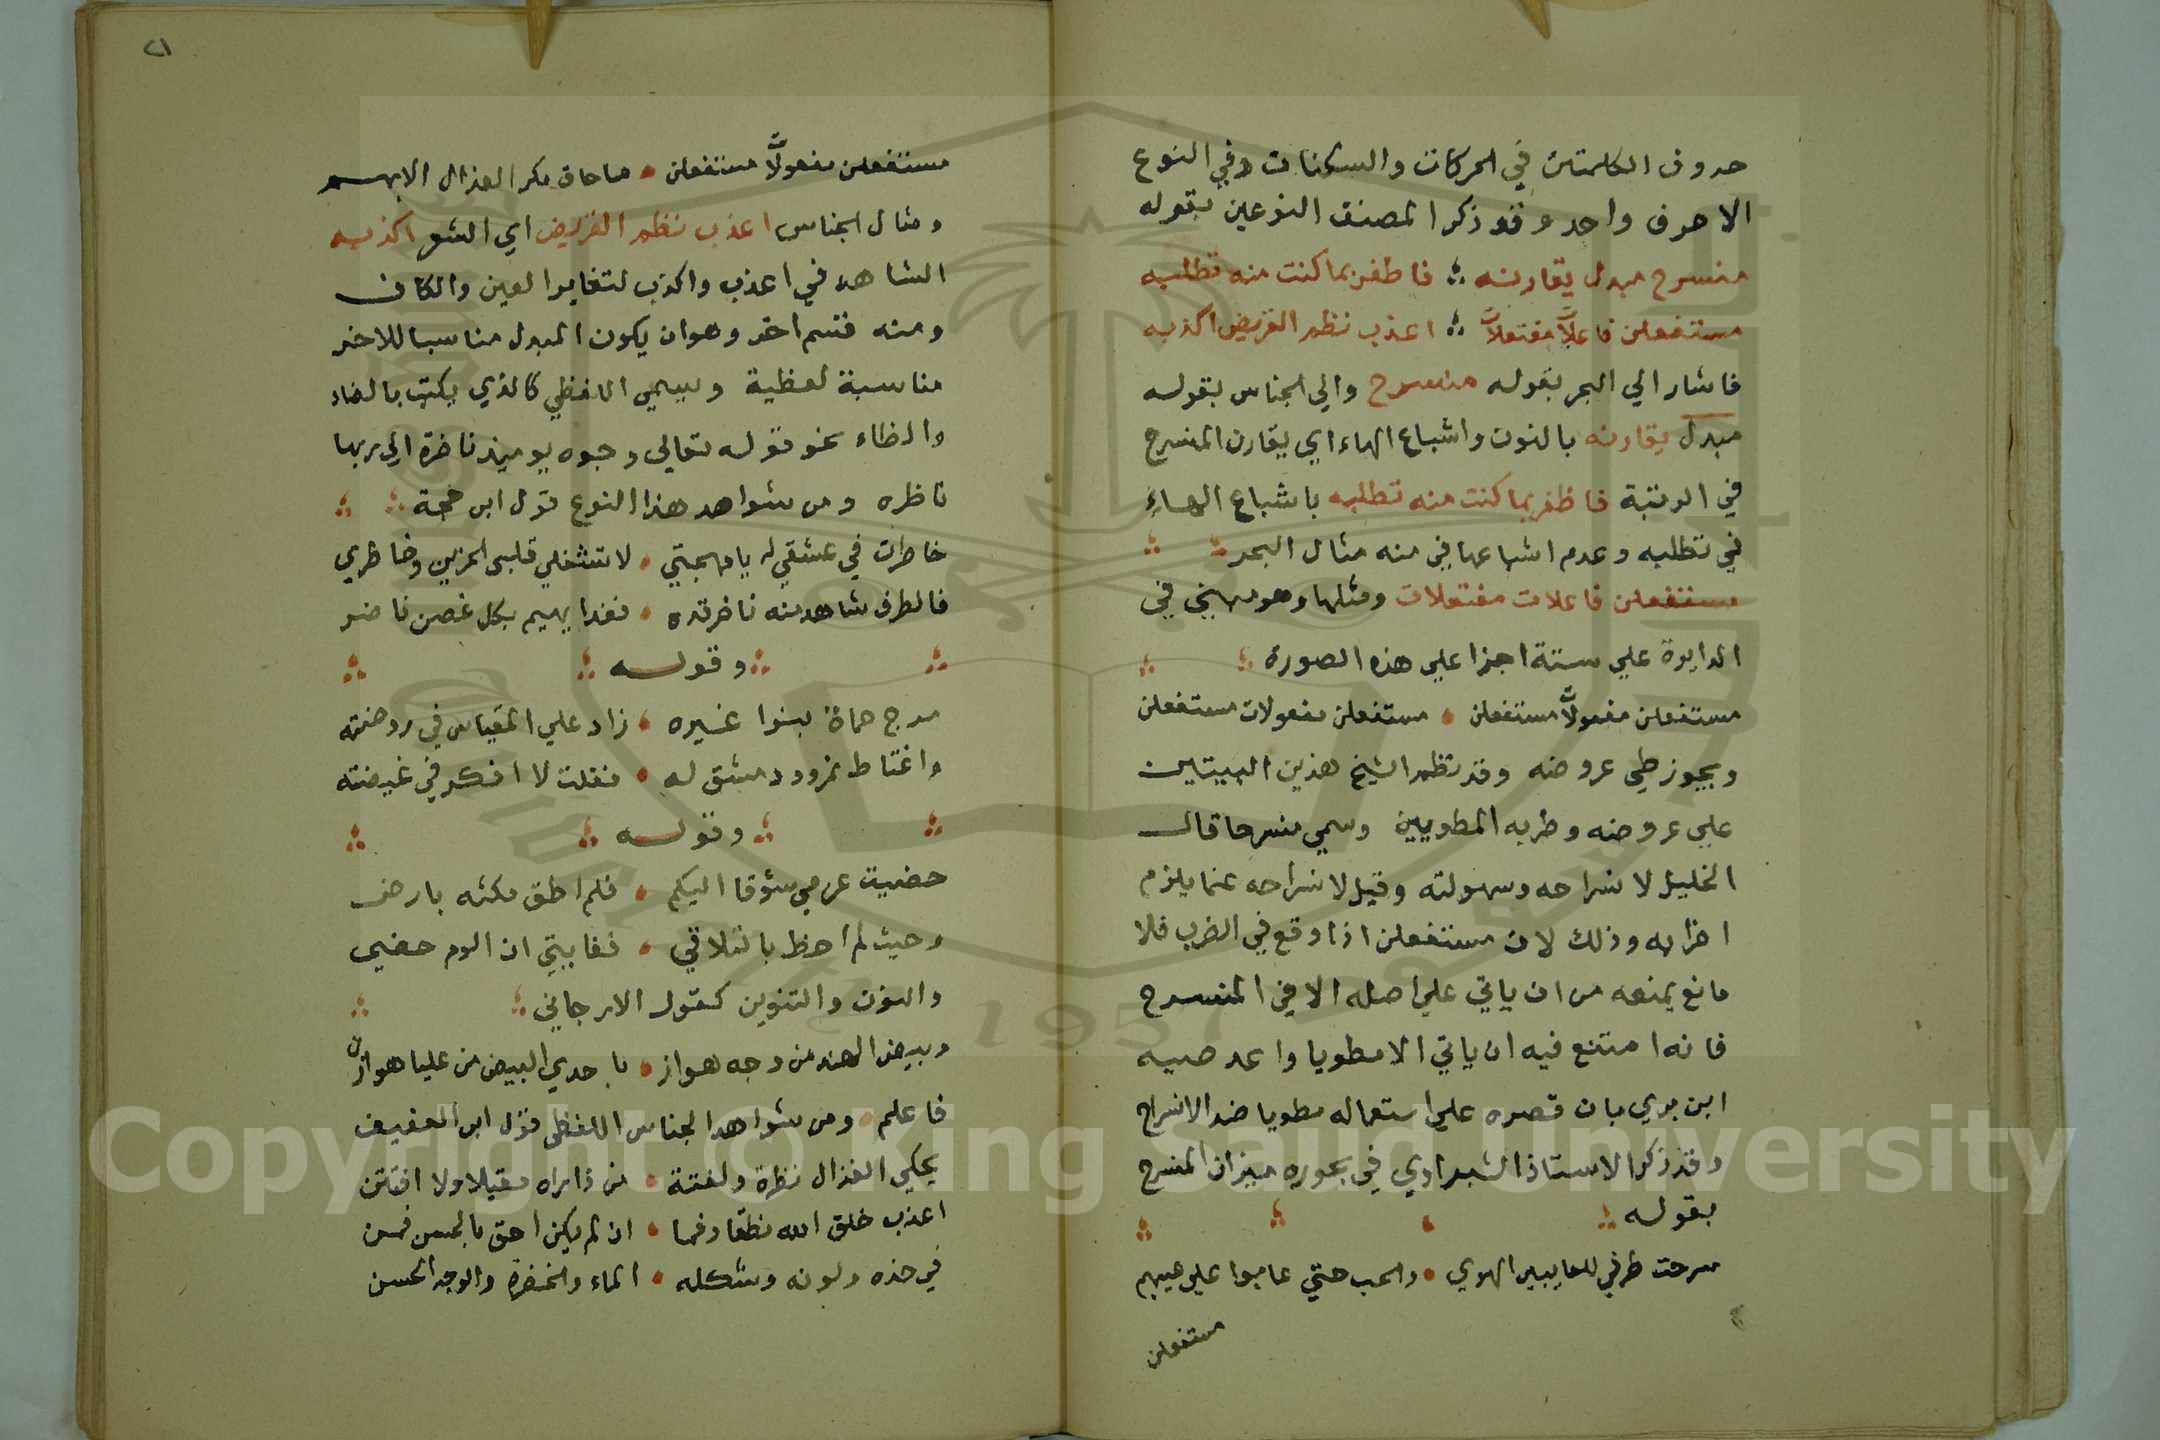 حروف الكلمتين في الحركات والسكنات وفي النوع
الاحرف واحد وقد ذكر المصنف النوعين بقوله
منسرح مبدل يقارنه فاظفر بما كنت منه تطلبه
مستفعلن فاعلات مفتعلات اعذب نظم القريض اكذبه
فاشار الي البحر بقوله منسرح والي الجناس بقوله
مبدل يقارنه بالنون واشباع الهاء اي يقارن المنسرح
في الرتبة فاظفر بما كنت منه تطلبه باشباع الهاء
في تطلبه وعدم اشباعها في منه مثال البحر
مستفعلن فاعلات مفتعلات ومثلها وهو مبني في
الدايرة علي ستة اجزا علي هذه الصورة
مستفعلن مفعولات مستفعلن مستفعلن مفعولات مستفعلن
ويجوز طي عروضه وقد نظم الشيخ هذين البيتين
علي عروضه وضربه المطويين وسمي منسرحا قال
الخليل لانسراحه وسهولته وقيل لانسراحه عما يلزم
اضرابه وذلك لان مستفعلن اذا وقع في الضرب فلا
مانع يمنعه من ان ياتي علي اصله الا في المنسرح
فانه امتنع فيه ان ياتي الا مطويا واعترضه
ابن بري بان قصره علي استعماله مطويا ضد الانسراح
وقد ذكر الاستاذ الشبراوي في بحوره ميزان المنسرح
بقوله
سرحت طرفي للحبايب الهوي والحب حتي عابوا علي عيبهم
مستفعلن
٢١
مستفعلن مفعولات مستفعلن ما حاق مكر العذال الا بهم
ومثال الجناس اعذب نظم القريض اي الشعر اكذبه
الشاهد في اعذب واكذب لتغاير العين والكاف
ومنه قسم اخر وهو ان يكون المبدل مناسبا للاخر
مناسبة لفظية ويسمي اللفظي كالذي يكتب بالضاد
والظاء نحو قوله تعالي وجوه يوميذ ناضرة الي ربها
ناظره ومن شواهد هذا النوع قول ابن حجة
خاطرت في عشقي له يا مهجتي لا تشغلي قلبي الحزين وخاطري
فالطرف شاهد منه ناضر قده فغدا يهيم بكل غصن ناضر
وقوله
مرج حماة بنوا غيره زاد علي المقياس في روضته
واغتاظ نمرود دمشق له فقلت لا افكر في غيضته
وقوله
حضيت عزمي شوقا اليكم فلم اطق مكثه بارض
وحيث لم احظ بالتلاقي فغايتي ان الوم حضي
والنون والتنوين كقول الارجاني
وبيض الهند من وجه هواز باحدي البيض من عليا هوازن
فاعلم ومن شواهد الجناس اللفظي قول ابن العفيف
يحكي الغزال نظرة ولفتة من ذا راه مقبلا ولا افتتن
اعذب خلق الله نطقا وفما ان لم يكن احق بالحسن فمن
في خده ولونه وشكله الماء والخضرة والوجه الحسن
Copyright © King Saud University
1957